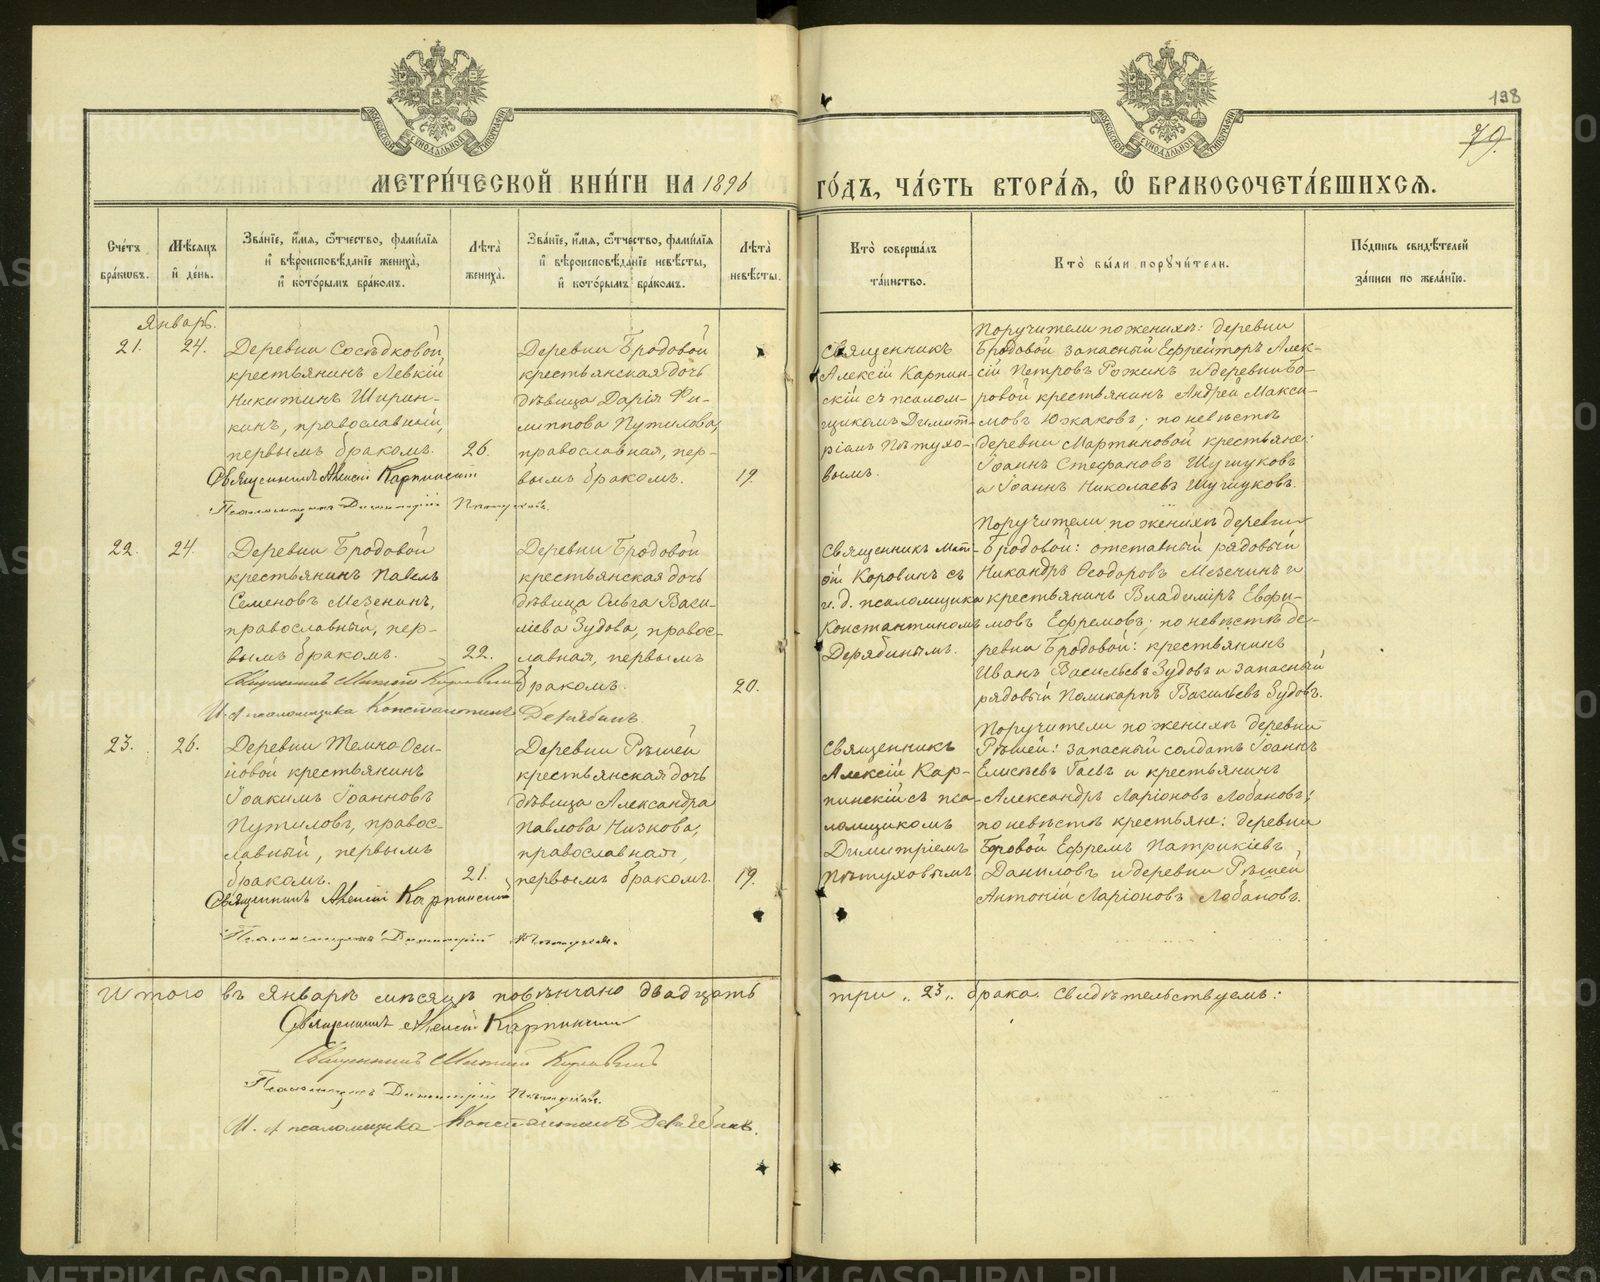 198
79.
МЕТРИ́ЧЕСКОЙ КНИ́ГИ НА 1896 ГО́ДЪ, ЧА́СТЬ ВТОРА́Я, Ѽ БРАКОСОЧЕТА́ВШИХСЯ.
Сче́тъ бра́кѡвъ.
Мѣ́сяцъ и҆ де́нь.
Зва́нїе, и҆́мя, ѻ҆́тчество, фами́лїя и҆ вѣроисповѣ́данїе жениха̀, и҆ кото́рымъ бра́комъ.
Лѣ́та жениха̀.
Зва́нїе, и҆́мя, ѻ҆́тчество, фами́лїя и҆ вѣроисповѣ́данїе невѣ́сты, и҆ кото́рымъ бра́комъ.
Лѣ́та невѣ́сты.
Кто̀ соверша́лъ та́инство.
Кто̀ бы́ли порꙋчи́тели.
По́дпись свидѣ́телей за́писи по жела́нїю.
Январь.
21.
24.
Деревни Сосѣдковой,
крестьянинъ Левкій
Никитинъ Ширин-
кинъ, православный,
первымъ бракомъ.
26.
Деревни Бродовой
крестьянская дочь
дѣвица Дарія Фи-
липпова Путилова,
православная, пер-
вымъ бракомъ.
19.
Священникъ
Алексій Карпин-
скій съ псалом-
щикомъ Димит-
ріемъ Пѣтухо-
вымъ.
Поручители по женихѣ: деревни
Бродовой запасный Ефрейторъ Алек-
сій Петровъ Рожинъ и деревни Бо-
ровой крестьянинъ Андрей Макси-
мовъ Южаковъ; по невѣстѣ
деревни Мартыновой крестьяне:
Іоаннъ Стефановъ Шушуковъ
и Іоаннъ Николаевъ Шушуковъ.
Священникъ Алексій Карпинскій
Псаломщикъ Димитрій Пѣтуховъ.
22.
24.
Деревни Бродовой
крестьянинъ Павелъ
Семеновъ Мезенинъ,
православный, пер-
вымъ бракомъ.
22.
Деревни Бродовой
крестьянская дочь
дѣвица Ольга Васи-
ліева Зудова, правос-
лавная, первымъ
бракомъ.
20.
Священникъ Мат-
ѳій Коровинъ съ
и. д. псаломщика
Константиномъ
Дерябинымъ.
Поручители по женихѣ деревни
Бродовой: отставный рядовый
Никандръ Ѳеодоровъ Мезенинъ и
крестьянинъ Владиміръ Евфи-
мовъ Ефремовъ; по невѣстѣ де-
ревни Бродовой: крестьянинъ
Иванъ Васильевъ Зудовъ и запасный
рядовый Поликарпъ Васильевъ Зудовъ.
И. д. псаломщика Константинъ Дерябинъ.
23.
26.
Деревни Темно-Оси-
новой крестьянинъ
Іоакимъ Іоанновъ
Путиловъ, правос-
лавный, первымъ
бракомъ.
21.
Деревни Рѣшей
крестьянская дочь
дѣвица Александра
Павлова Низкова,
православная,
первымъ бракомъ.
19.
Священникъ
Алексій Кар-
пинскій съ пса-
ломщикомъ
Димитріемъ
Пѣтуховымъ
Поручители по женихѣ деревни
Рѣшей: запасный солдатъ Іоаннъ
Елисѣевъ Гаевъ и крестьянинъ
Александръ Ларіоновъ Лобановъ;
по невѣстѣ крестьяне: деревни
Боровой Ефремъ Патрикіевъ
Даниловъ и деревни Рѣшей
Антоній Ларіоновъ Лобановъ.
Священникъ Алексій Карпинскій
Псаломщикъ Димитрій Пѣтуховъ.
Итого въ Январѣ мѣсяцѣ повѣнчано двадцать три „23„ брака. Свидѣтельствуемъ:
Священникъ Алексій Карпинскій
Псаломщикъ Димитрій Пѣтуховъ.
И. д. псаломщика Константинъ Дерябинъ.
METRIKI.GASO-URAL.RU